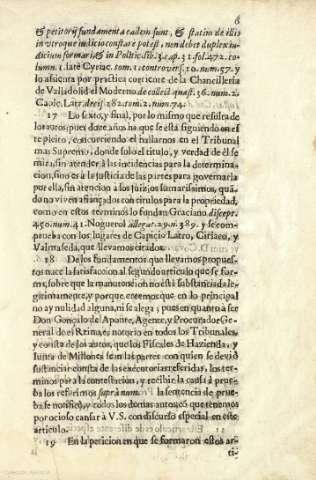 6
& petitorij fundamenta eadem sunt, & statim de illis
in vtroque iudicio constare potest, non debet duplex iu-
dicium formari, & in Politic. lib. 3. cap. 31. fol. 472. to-
mi. 1. latè Cyriac. tom. 1. controuer. 10. num. 57. y
lo assienta por practica corriente de la Chancilleria
de Valladolid el Moderno de collect. quæst. 36. num. 2.
Capic. Latr. decis. 182. tom. 2. num. 74.
17 Lo sexto, y final, por lo mismo que resulta de
los autos, pues doze años ha que se està siguiendo en es
te pleito, concurriendo el hallarnos en el Tribunal
mas Supremo, donde solo el titulo, y verdad de èl se
mira, sin atender à las incidencias para la determina-
cion, sino es à la justicia de las partes para gouernarla
por ella, sin atencion à los juizios sumarissimos, quã-
do no viven afiançados con titulos para la propriedad,
como en estos terminos lo fundan Graciano discept.
450. num. 41. Noguerol allegat. 29. n. 389. y se com-
prueba con los lugares de Capicio Latro, Ciriaco, y
Valmaseda, que llevamos citados.
18 De los fundamentos que llevamos propues-
tos nace la satisfaccion al segundo articulo que se for-
ma, sobre que la manutencion no està substanciada le-
gitimamente, y porque creemos que en lo principal
no ay nulidad alguna, ni se alega; pues en quanto à ser
Don Gonçalo de Aponte, Agente, y Procurador Ge-
neral de el Reino, es notorio en todos los Tribunales,
y consta de los autos, que los Fiscales de Hazienda, y
Iunta de Millones son las partes con quien se deviò
substanciar consta de las executorias referidas, los ter-
minos para la contestacion, y recibir la causa à prue-
ba los referimos suprà num. la sentencia de prue-
ba se notificò, y todos los demas autos, cõ que tenemos
por ocioso cansar à V.S. con discurso especial en este
articulo.
19 En la peticion en que se formaron estos ar-
ti-